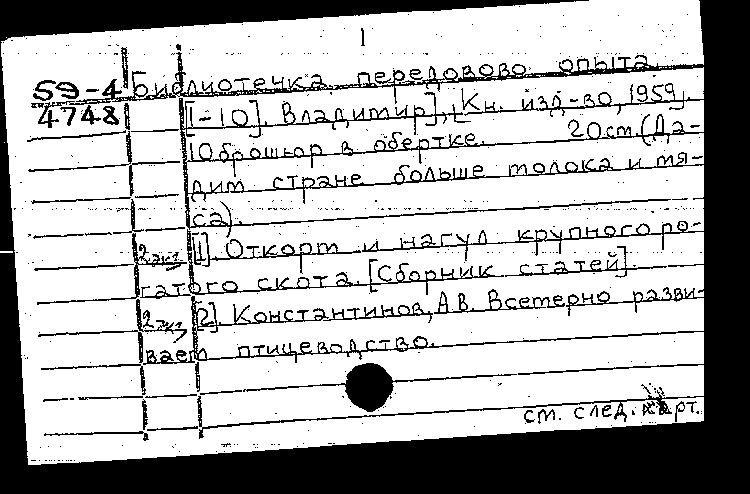 1
59-4 Библиотечка передовово опыта
4748 [1-10]. Владимир], Кн. изд-во, 1959].
10 брошюр в обертке. 20 см. (Да-
дим стране больше молока и мя-
са).
2 экз [1]. Откорм и нагул крупного ро-
гатого скота. [Сборник статей].
2 экз [2]. Константинов, А.В. Всемерно разви-
ваем птицеводство.
см. след. карт.